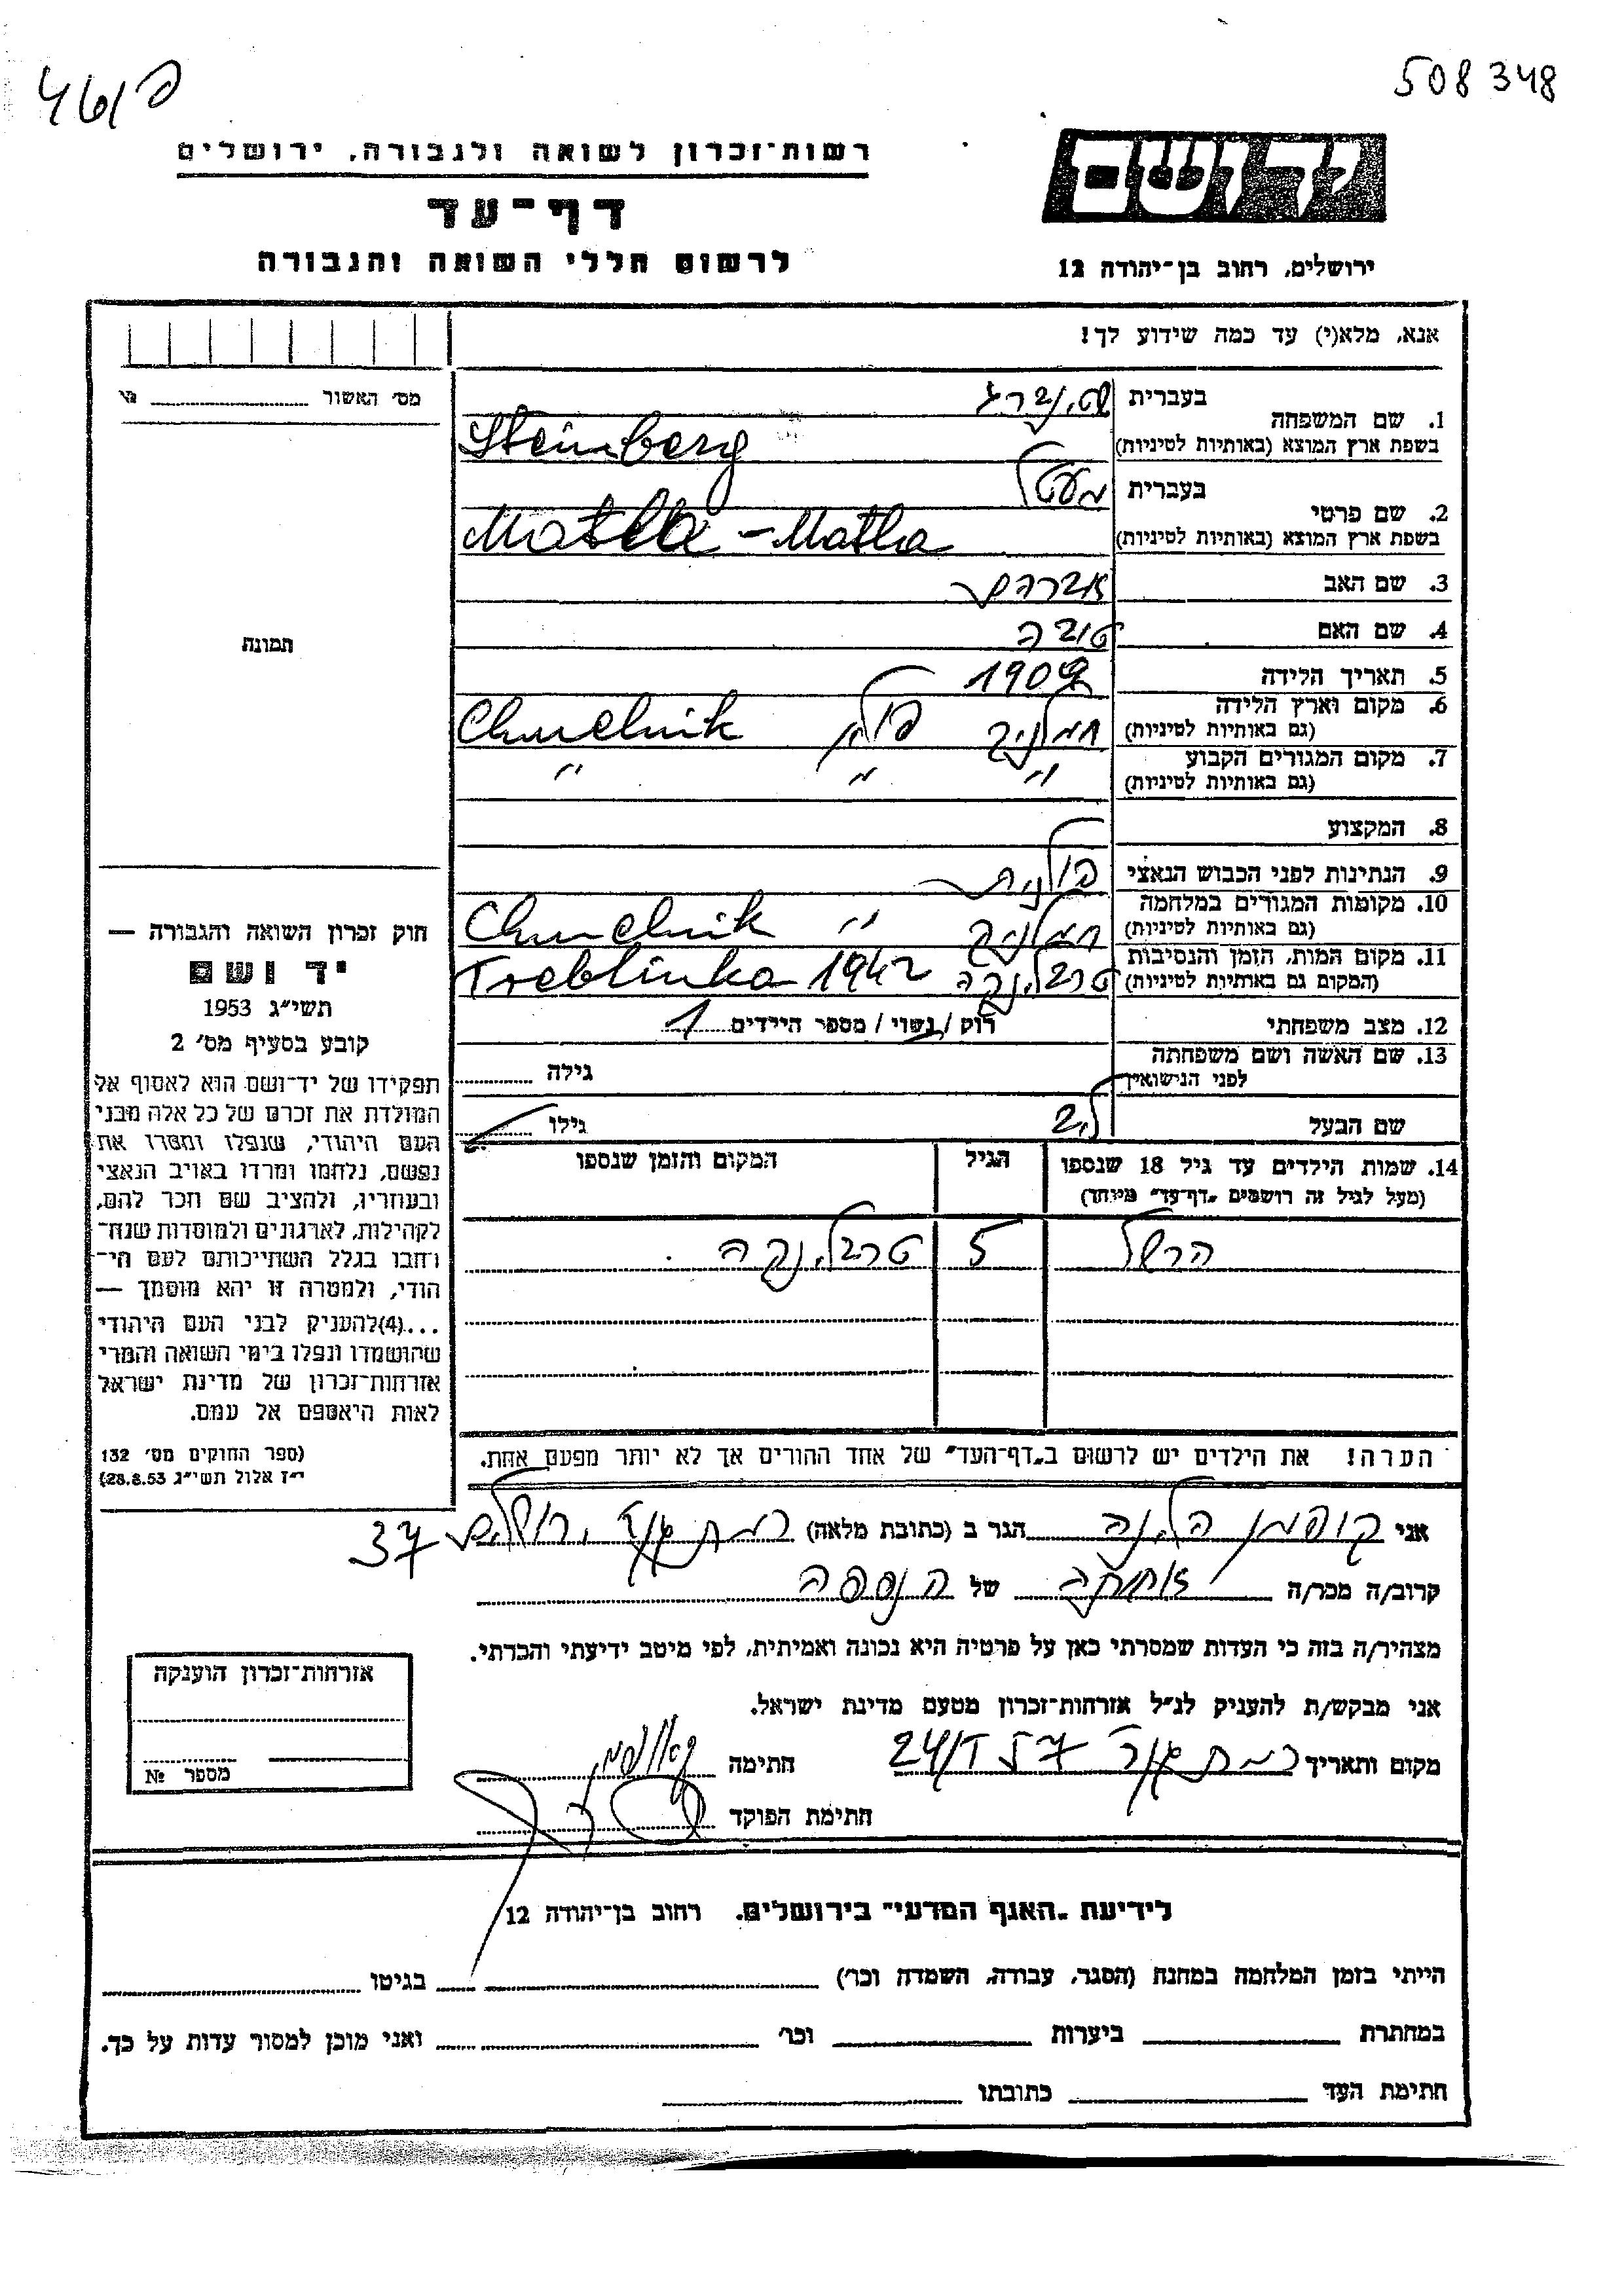 508348
רשות־זכרון לשואה ולגבורה, ירושלים
יד ושם
דף־עד
לרשום חללי השואה והגבורה
ירושלים, רחוב בן־יהודה 12
אנא, מלא(י) עד כמה שידוע לך!
מס׳ האשור № 
1. שם המשפחה בעברית שטינברג
בשפת ארץ המוצא (באותיות לטיניות) Steinberg
2. שם פרטי בעברית מעטל
בשפת ארץ המוצא (באותיות לטיניות) Matla - Matla
3. שם האב אברהם
4. שם האם טובה
תמונה
5. תאריך הלידה 1909
6. מקום וארץ הלידה (גם באותיות לטיניות) חמלניק פולין Chmelnik
7. מקום המגורים הקבוע (גם באותיות לטיניות) " " "
8. המקצוע
9. הנתינות לפני הכבוש הנאצי פולנית
10. מקומות המגורים במלחמה (גם באותיות לטיניות) חמלניק " Chmelnik
11. מקום המות, הזמן והנסיבות (המקום גם באותיות לטיניות) טרבלינקה 1942 Treblinka
12. מצב משפחתי רוק / נשוי / מספר הילדים 1
13. שם האשה ושם משפחתה לפני הנישואין גילה
שם הבעל ליב גילו
14. שמות הילדים עד גיל 18 שנספו הגיל המקום והזמן שנספו
(מעל לגיל זה רושמים „דף־עד" מיוחד)
הרשל 5 טרבלינקה
הערה! את הילדים יש לרשום ב„דף־העד" של אחד ההורים אך לא יותר מפעם אחת.
חוק זכרון השואה והגבורה —
יד ושם
תשי״ג 1953
קובע בסעיף מס׳ 2
תפקידו של יד־ושם הוא לאסוף אל
המולדת את זכרם של כל אלה מבני
העם היהודי, שנפלו ומסרו את
נפשם, נלחמו ומרדו באויב הנאצי
ובעוזריו, ולהציב שם וזכר להם,
לקהילות, לארגונים ולמוסדות שנח־
רבו בגלל השתייכותם לעם הי־
הודי, ולמטרה זו יהא מוסמך —
...(4) להעניק לבני העם היהודי
שהושמדו ונפלו בימי השואה והמרי
אזרחות־זכרון של מדינת ישראל
לאות היאספם אל עמם.
(ספר החוקים מס׳ 132
י״ז אלול תשי״ג 28.8.53)
אני קופמן הלינה הגר ב (כתובת מלאה) רמת גן ירושלים 37
קרוב/ה מכר/ה אחותה של הנספה
מצהיר/ה בזה כי העדות שמסרתי כאן על פרטיה היא נכונה ואמיתית, לפי מיטב ידיעתי והכרתי.
אני מבקש/ת להעניק לנ״ל אזרחות־זכרון מטעם מדינת ישראל.
מקום ותאריך רמת גן 24/ חתימה
חתימת הפוקד
אזרחות־זכרון הוענקה
מספר №
לידיעת „האגף המדעי" בירושלים. רחוב בן־יהודה 12
הייתי בזמן המלחמה במחנה (הסגר, עבודה, השמדה וכו׳) בגיטו
במחתרת ביערות וכו׳ ואני מוכן למסור עדות על כך.
חתימת העד כתובתו